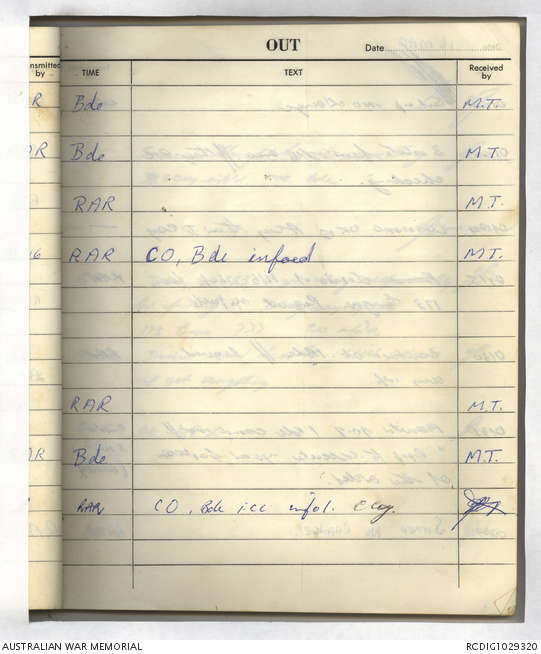 OUT
Date
nsmitted by
TIME
TEXT
Received by
R Bde M.T.
R Bde M.T.
RAR M.T.
RAR CO, Bde infoed M.T.
RAR M.T.
R Bde M.T.
RAR CO, Bde icc Coy.
AUSTRALIAN WAR MEMORIAL
RCDIG1029320